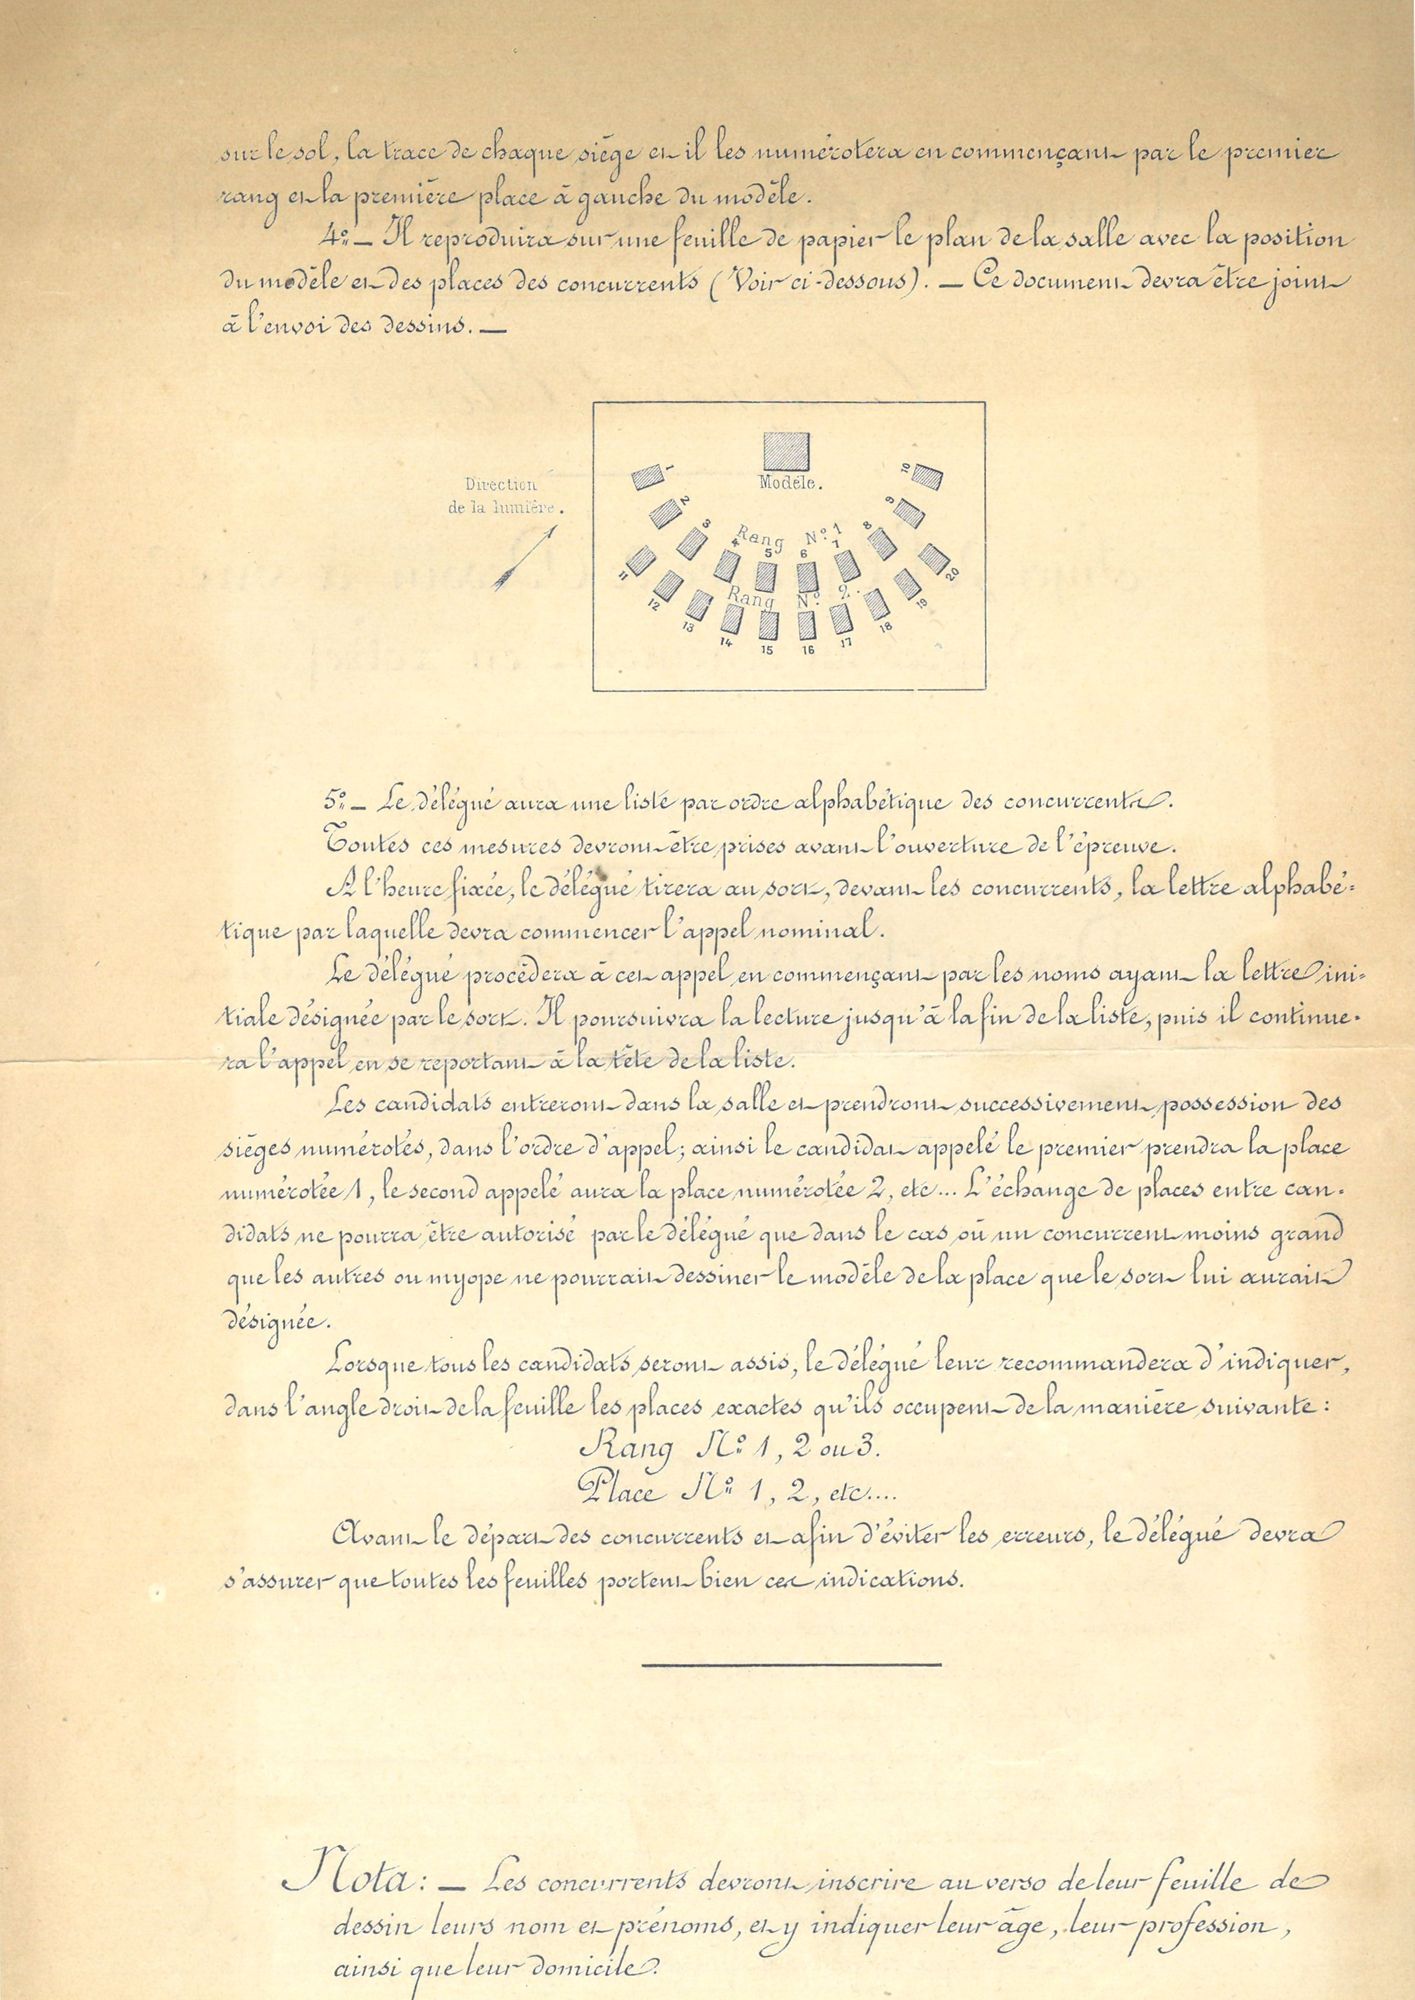 sur le sol, la trace de chaque siége et il les numérotera en commençant par le premier
rang et la première place à gauche du modèle.
4º — Il reproduira sur une feuille de papier le plan de la salle avec la position
du modèle et des places des concurrents (Voir ci-dessous). — Ce document devra être joint
à l'envoi des dessins. —
Modèle.
Direction
de la lumière.
1
2
3
4
5
6
7
8
9
10
Rang Nº 1
Rang Nº 2.
11
12
13
14
15
16
17
18
19
20
5º — Le délégué aura une liste par ordre alphabétique des concurrents.
Toutes ces mesures devront être prises avant l'ouverture de l'épreuve.
A l'heure fixée, le délégué tirera au sort, devant les concurrents, la lettre alphabé-
tique par laquelle devra commencer l'appel nominal.
Le délégué procèdera à cet appel en commençant par les noms ayant la lettre ini-
tiale désignée par le sort. Il poursuivra la lecture jusqu'à la fin de la liste, puis il continue-
ra l'appel en se reportant à la tête de la liste.
Les candidats entreront dans la salle et prendront successivement possession des
siéges numérotés, dans l'ordre d'appel; ainsi le candidat appelé le premier prendra la place
numérotée 1, le second appelé aura la place numérotée 2, etc... L'échange de places entre can-
didats ne pourra être autorisé par le délégué que dans le cas où un concurrent moins grand
que les autres ou myope ne pourrait dessiner le modèle de la place que le sort lui aurait
désignée.
Lorsque tous les candidats seront assis, le délégué leur recommandera d'indiquer,
dans l'angle droit de la feuille les places exactes qu'ils occupent de la manière suivante:
Rang Nº 1, 2 ou 3.
Place Nº 1, 2, etc....
Avant le départ des concurrents et afin d'éviter les erreurs, le délégué devra
s'assurer que toutes les feuilles portent bien ces indications.
Nota: — Les concurrents devront inscrire au verso de leur feuille de
dessin leurs nom et prénoms, et y indiquer leur âge, leur profession,
ainsi que leur domicile.